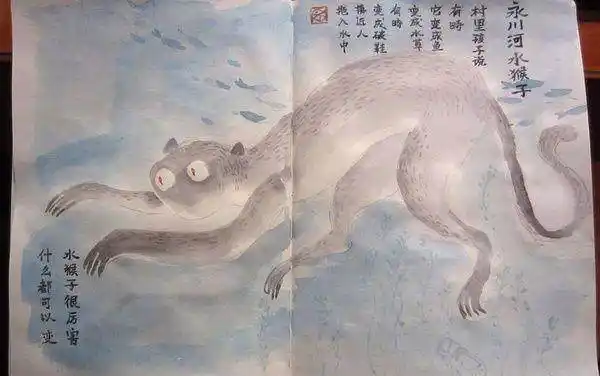 永川河水猴子
村里孩子说
有時
它变成鱼
变成水草
有時
变成破鞋
接近人
拖入水中
水猴子很厉害
什么都可以变